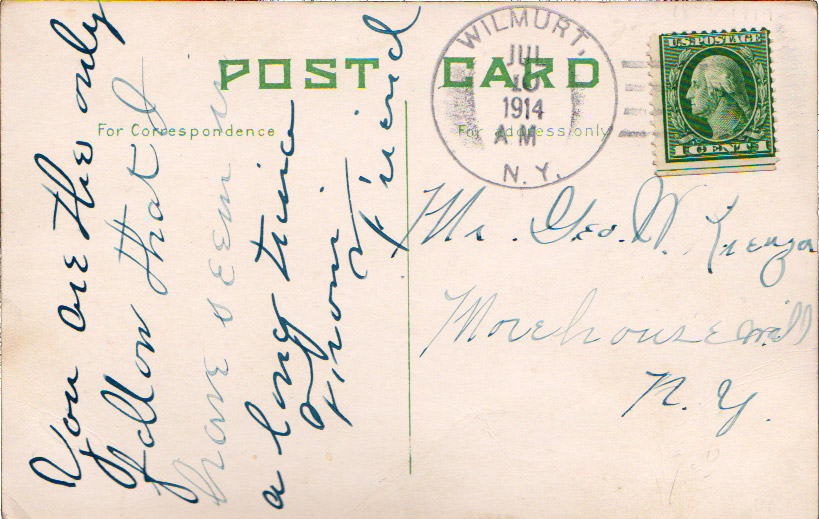 POST CARD
For Correspondence
For address only
WILMURT,
JUL
10
1914
A M
N. Y.
U.S. POSTAGE
1 CENT 1
You are the only
fallow that I
have seem in
a long time
From
Friend
Mr. Geo. W.
Morehouseville
N. Y.